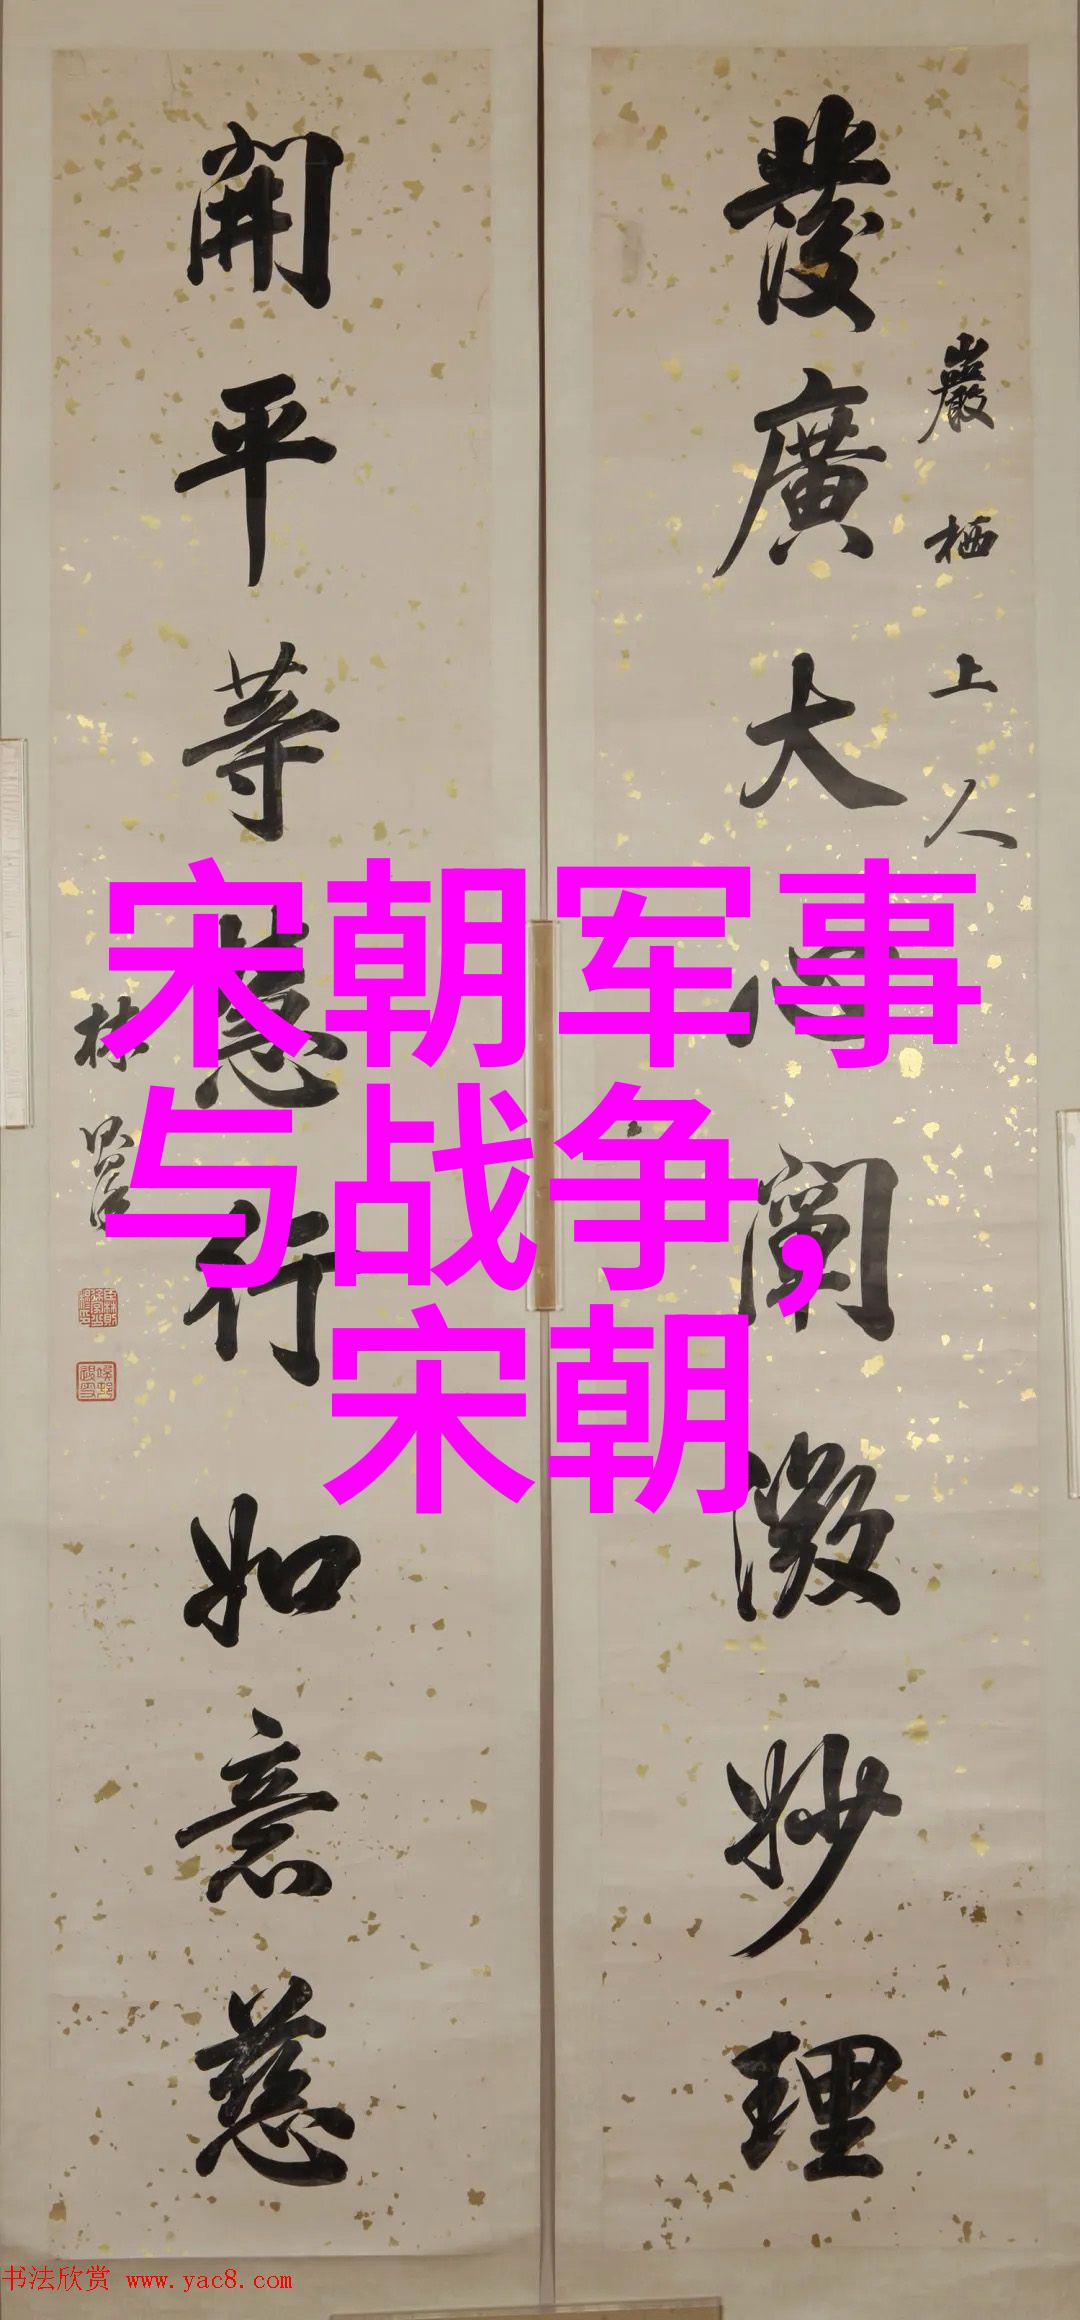 嚴栖上人
發廣大心闡微妙理
開平等慧行如意慈
林則徐
宋朝军事
与战争,
宋朝
书法欣赏 www.yac8.com